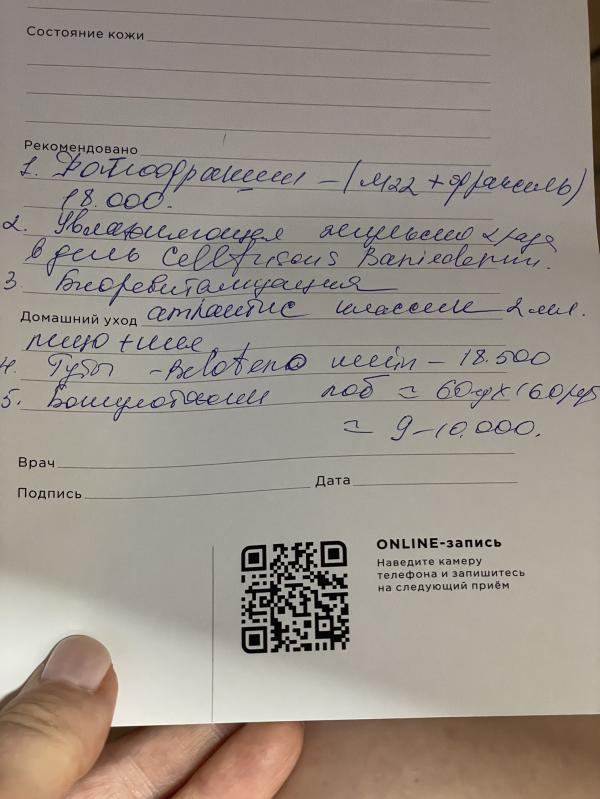 Состояние кожи
Рекомендовано
1. Фотиодракшин – (м22 + фраксель)
18.000.
2. Увлажняющая эмульсию 2 раза
в день Cellfusions Baniederm.
3 Биоревитализация
Домашний уход атлантис классик 2 мл.
лицо + шея
4. Губы – Belotero – 18.500
5. Ботулотоксин лоб ≈ 60ед х 160руб
≈ 9–10.000.
Врач
Подпись
Дата
ONLINE-запись
Наведите камеру
телефона и запишитесь
на следующий приём